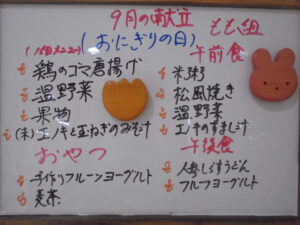 9月の献立
もも組
(おにぎりの日)
鶏のゴマ唐揚げ
温野菜
果物
(未)エノキと玉ねぎのみそ汁
おやつ
手作りフルーツヨーグルト
麦茶
午前食
米粥
松風焼き
温野菜
エノキのすまし汁
午後食
人参しらすうどん
フルーツヨーグルト